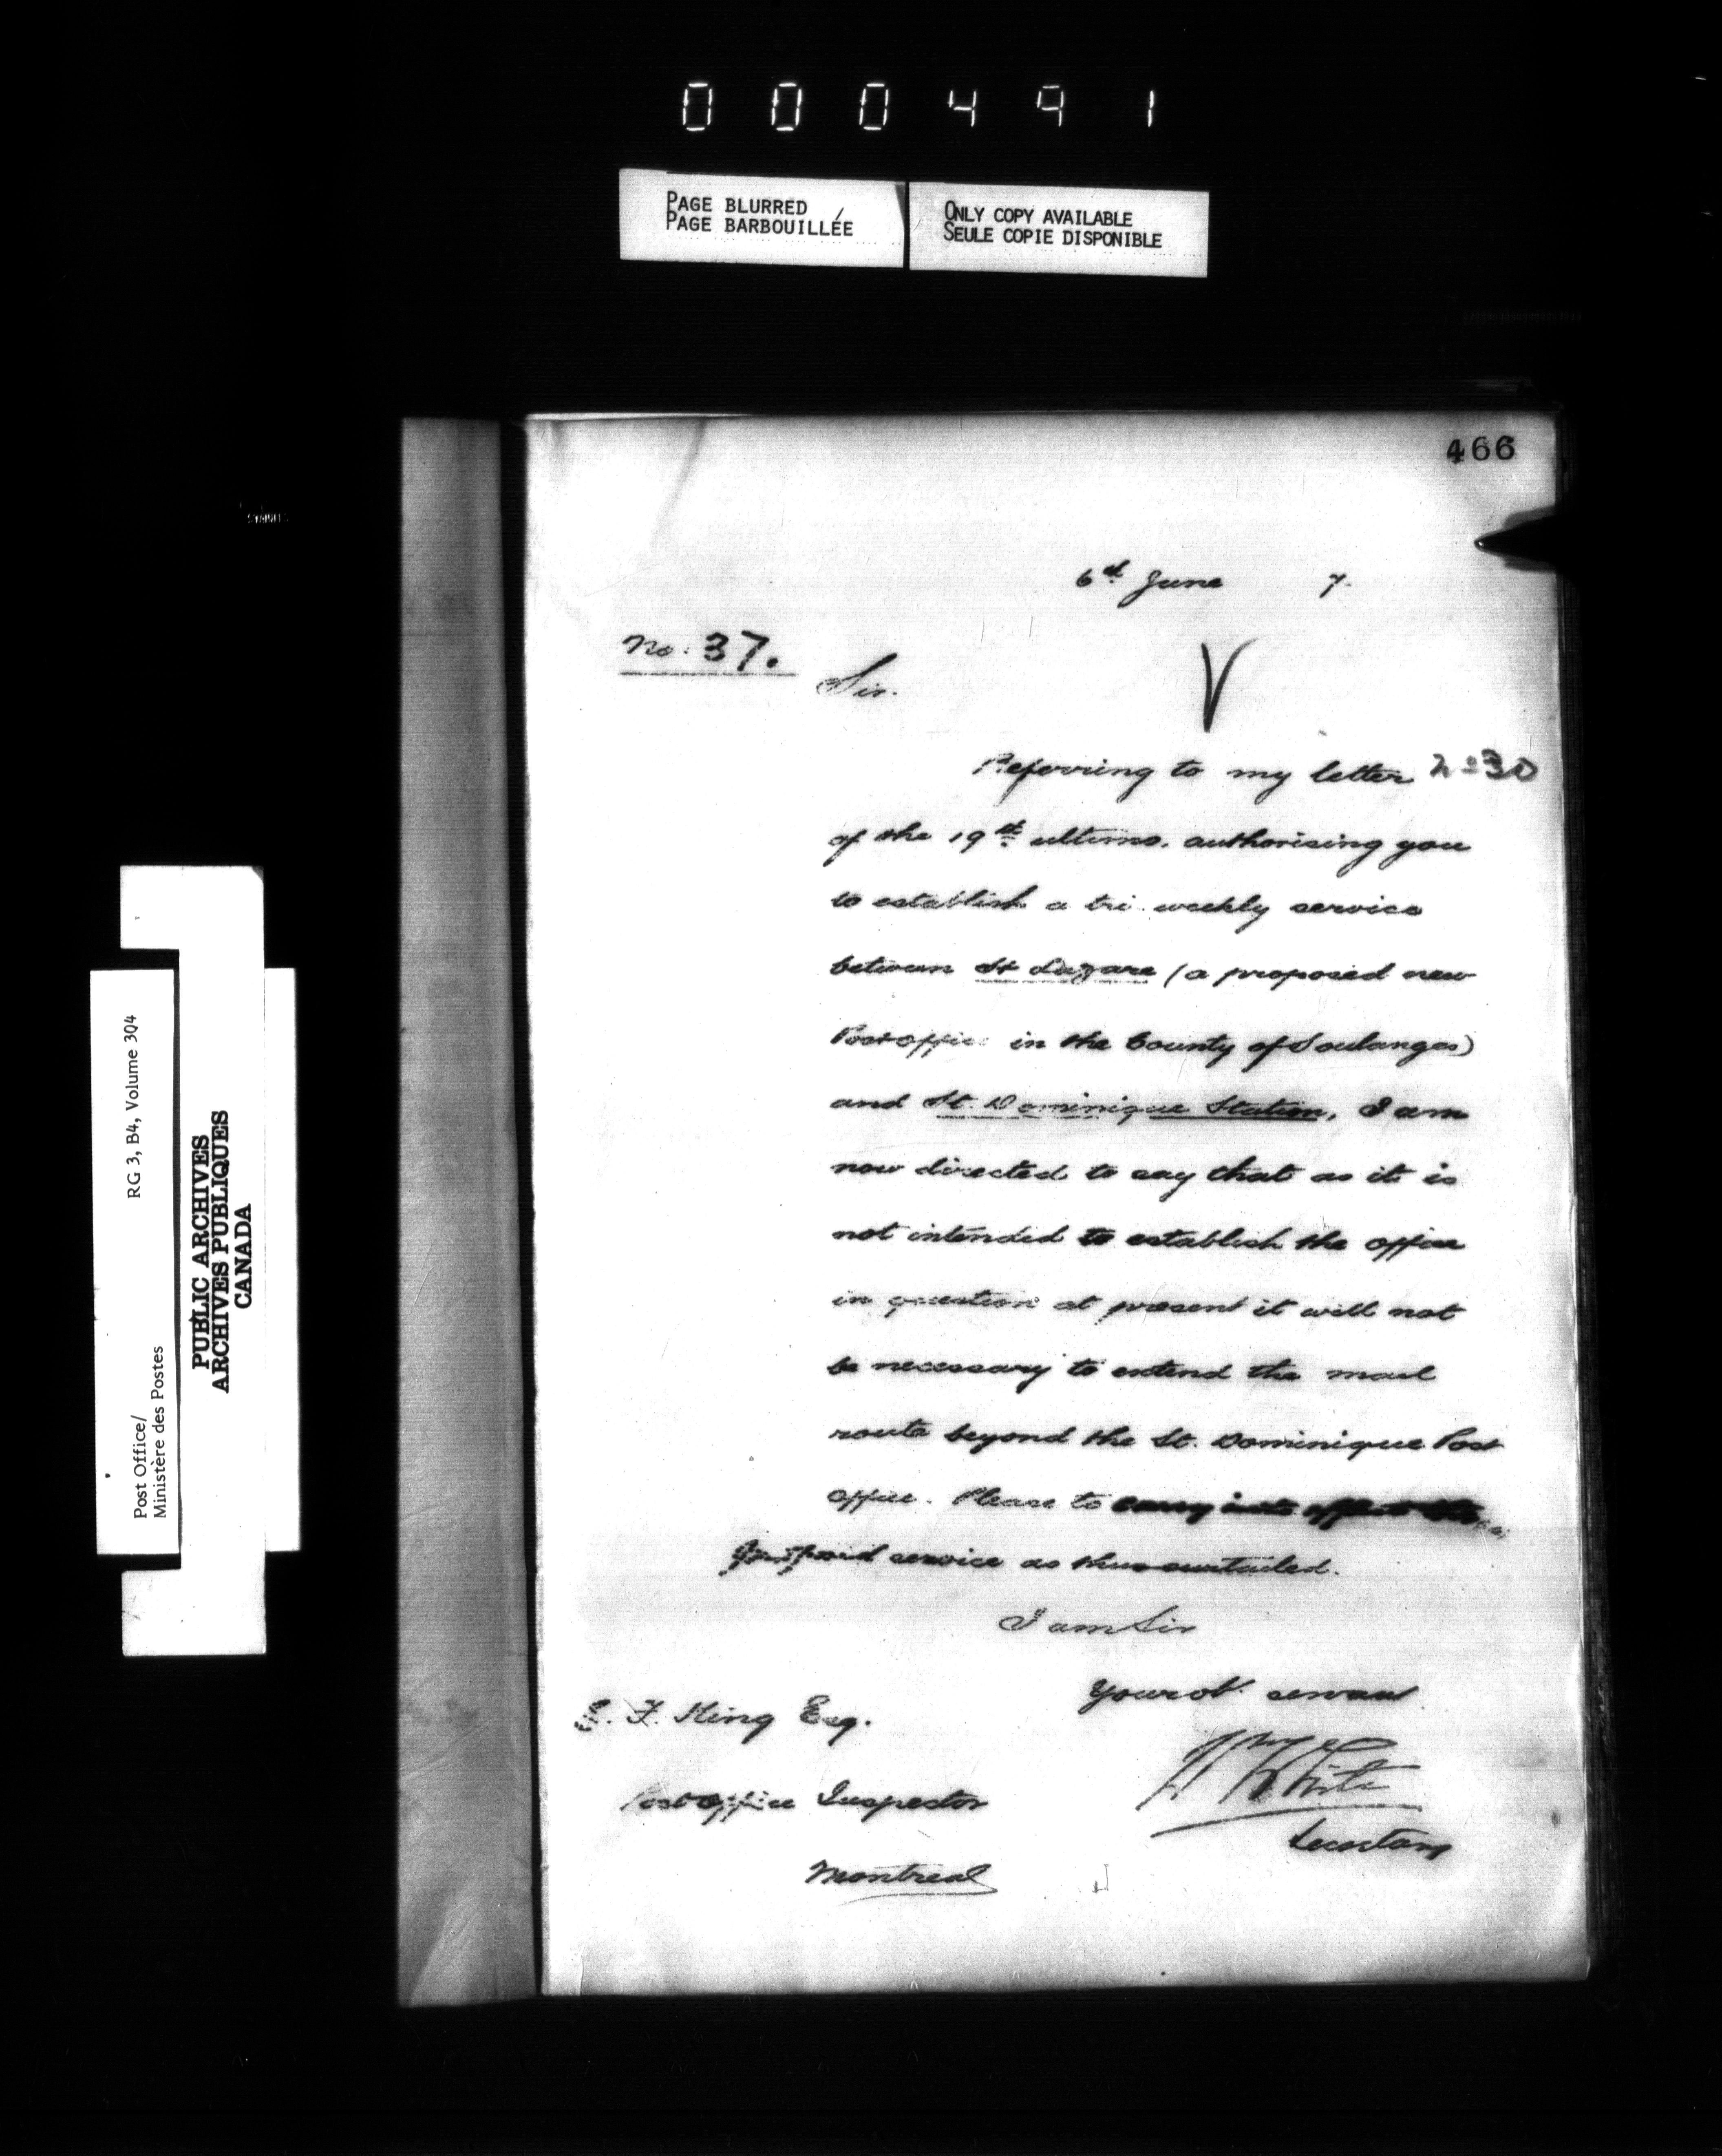 000491
PAGE BLURRED
PAGE BARBOUILLÉE
ONLY COPY AVAILABLE
SEULE COPIE DISPONIBLE
466
6th June 7.
No. 37.
Sir.
Referring to my letter No 30
of the 19th ultimo. authorising you
to establish a tri-weekly service
between St Lazare (a proposed new
Post office in the County of Soulanges)
and St. Dominique Station, I am
now directed to say that as it is
not intended to establish the office
in question at present it will not
be necessary to extend the mail
route beyond the St. Dominique Post
office. Please to carry into effect the
service as thus curtailed.
I am Sir
Your ob. servant
White
Secretary
F. King Esq.
Post office Inspector
Montreal
Post Office/
Ministère des Postes
RG 3, B4, Volume 304
PUBLIC ARCHIVES
ARCHIVES PUBLIQUES
CANADA